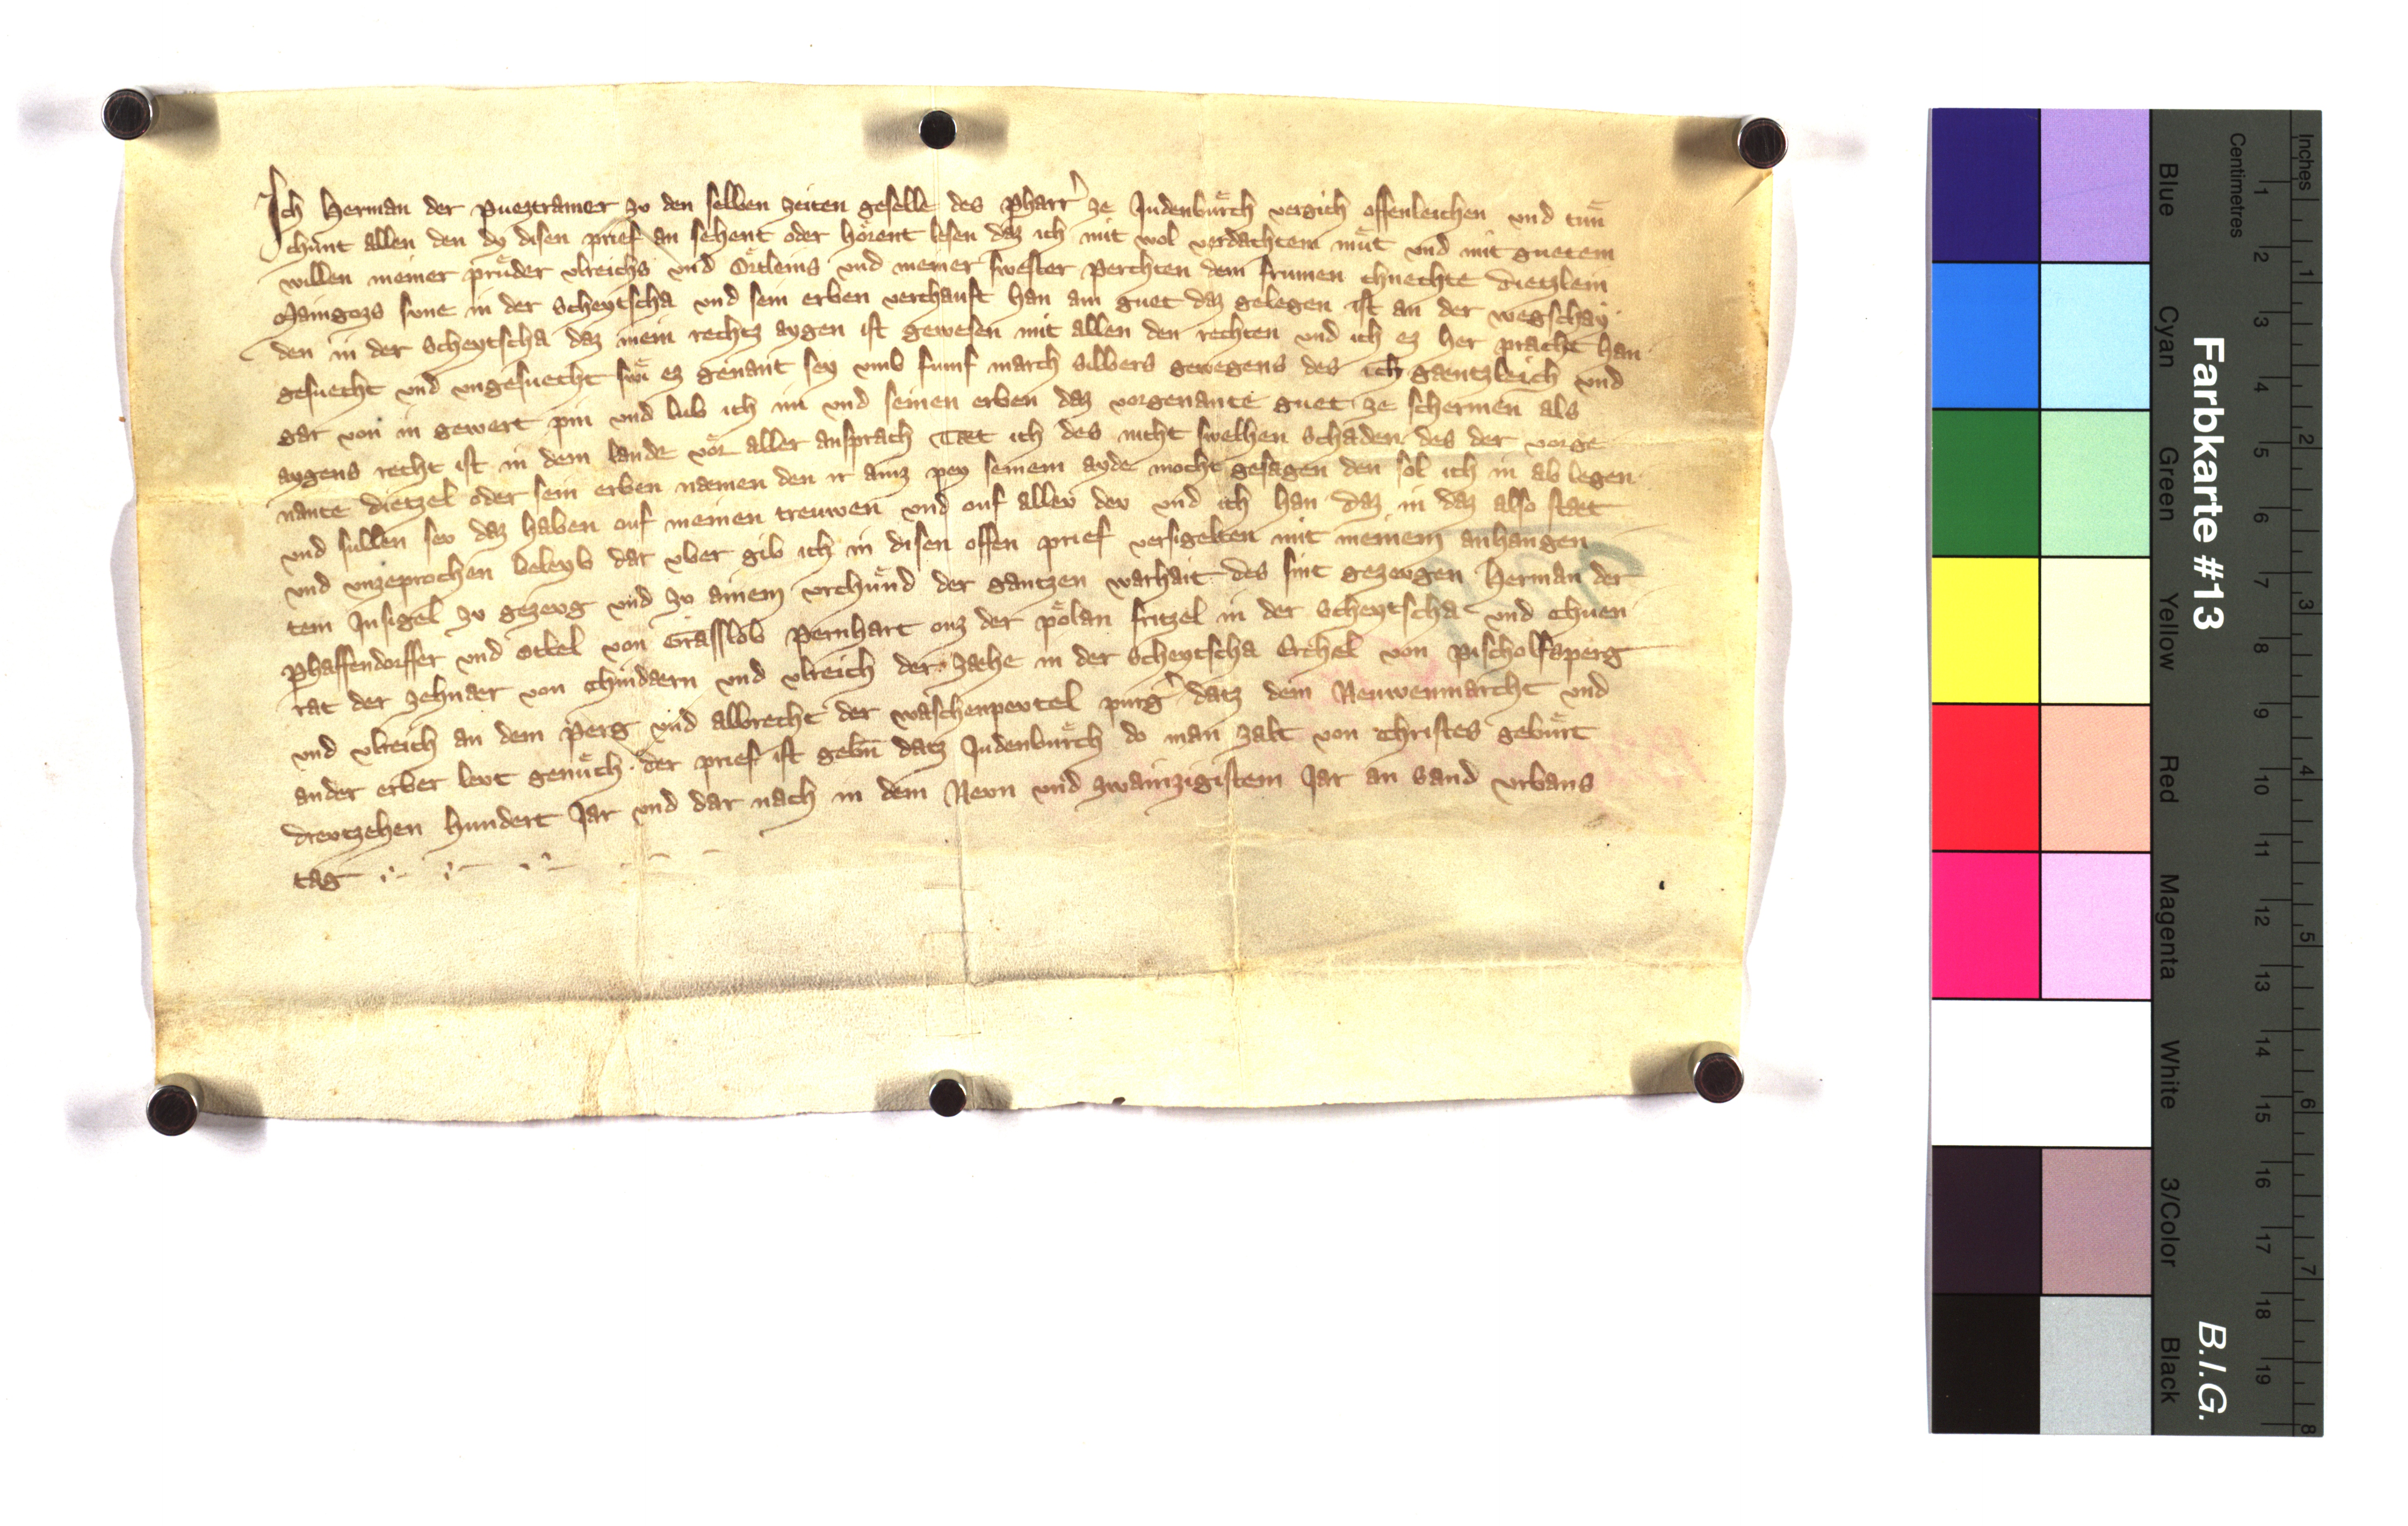 Ich Herman der Pueztramer zv den selben zeiten geselle des pharr᾽ ze Judenbuͤrch vergich offenleichen vnd tuͤn
chunt allen den dy disen prief an sehent oder hoͤrent lesen daz ich mit wol verdachtem muͤt vnd mit guetem
willen meiner pruͤder vlreichs vnd Oͤrtleins vnd meiner swester Perchten dem frumen chnechte Dietzlein
Maingozs svne in der Scheytscha vnd sein erben verchauft han ain guet daz gelegen ist an der wegschay
den in der Scheytscha daz mein rechtz aygen ist gewesen mit allen den rechten vnd ich ez her pracht han
gesuecht vnd vngesuecht swi ez genant sey vmb fumf march silbers gewegens des ich gaentzleich vnd
gar von in gewert pin vnd lub ich im vnd seinen erben daz vorgenante guet ze schermen als
aygens recht ist in dem lande voͤr aller ansprach Taet ich des nicht swelhen schaden des der vorge
nante Dietzel oder sein erben naemen den ir ainz pey seinem ayde mocht gesagen den sol ich in ab legen
vnd sullen sev daz haben ouf meinen treuwen vnd ouf allev dev vnd ich han daz in daz also staet
vnd vnzeprochen beleyb dar vber gib ich in disen offen prief versigelten mit meinem anhangen
tem Insigel zv gezevg vnd zv ainem vrchuͤnd der gantzen warhait des sint gezevgen Herman der
Phaffendorffer vnd Ottel von Grasslob Pernhart ouz der Poͤlan Fritzel in der Scheytscha vnd Chuen
rat der zehnaer von Chindaern vnd vlreich der zaehe in der Scheytscha Erchel von Pischolfsperg
vnd vlreich an dem Perg vnd Albrecht der waschenpevtel purg᾽ datz dem Neuwenmarcht vnd
ander erber levt genuͤch der prief ist gebn̄ datz Judenbuͤrch do man zalt von Christes gebuͤrt
Drevtzehen hundert Jar vnd dar nach in dem Nevn vnd zwainzigistem Jar an Sand vrbans
tag
Farbkarte #13
B.I.G.
Centimetres
Inches
1 2 3 4 5 6 7 8 9 10 11 12 13 14 15 16 17 18 19
1 2 3 4 5 6 7 8
Blue
Cyan
Green
Yellow
Red
Magenta
White
3/Color
Black